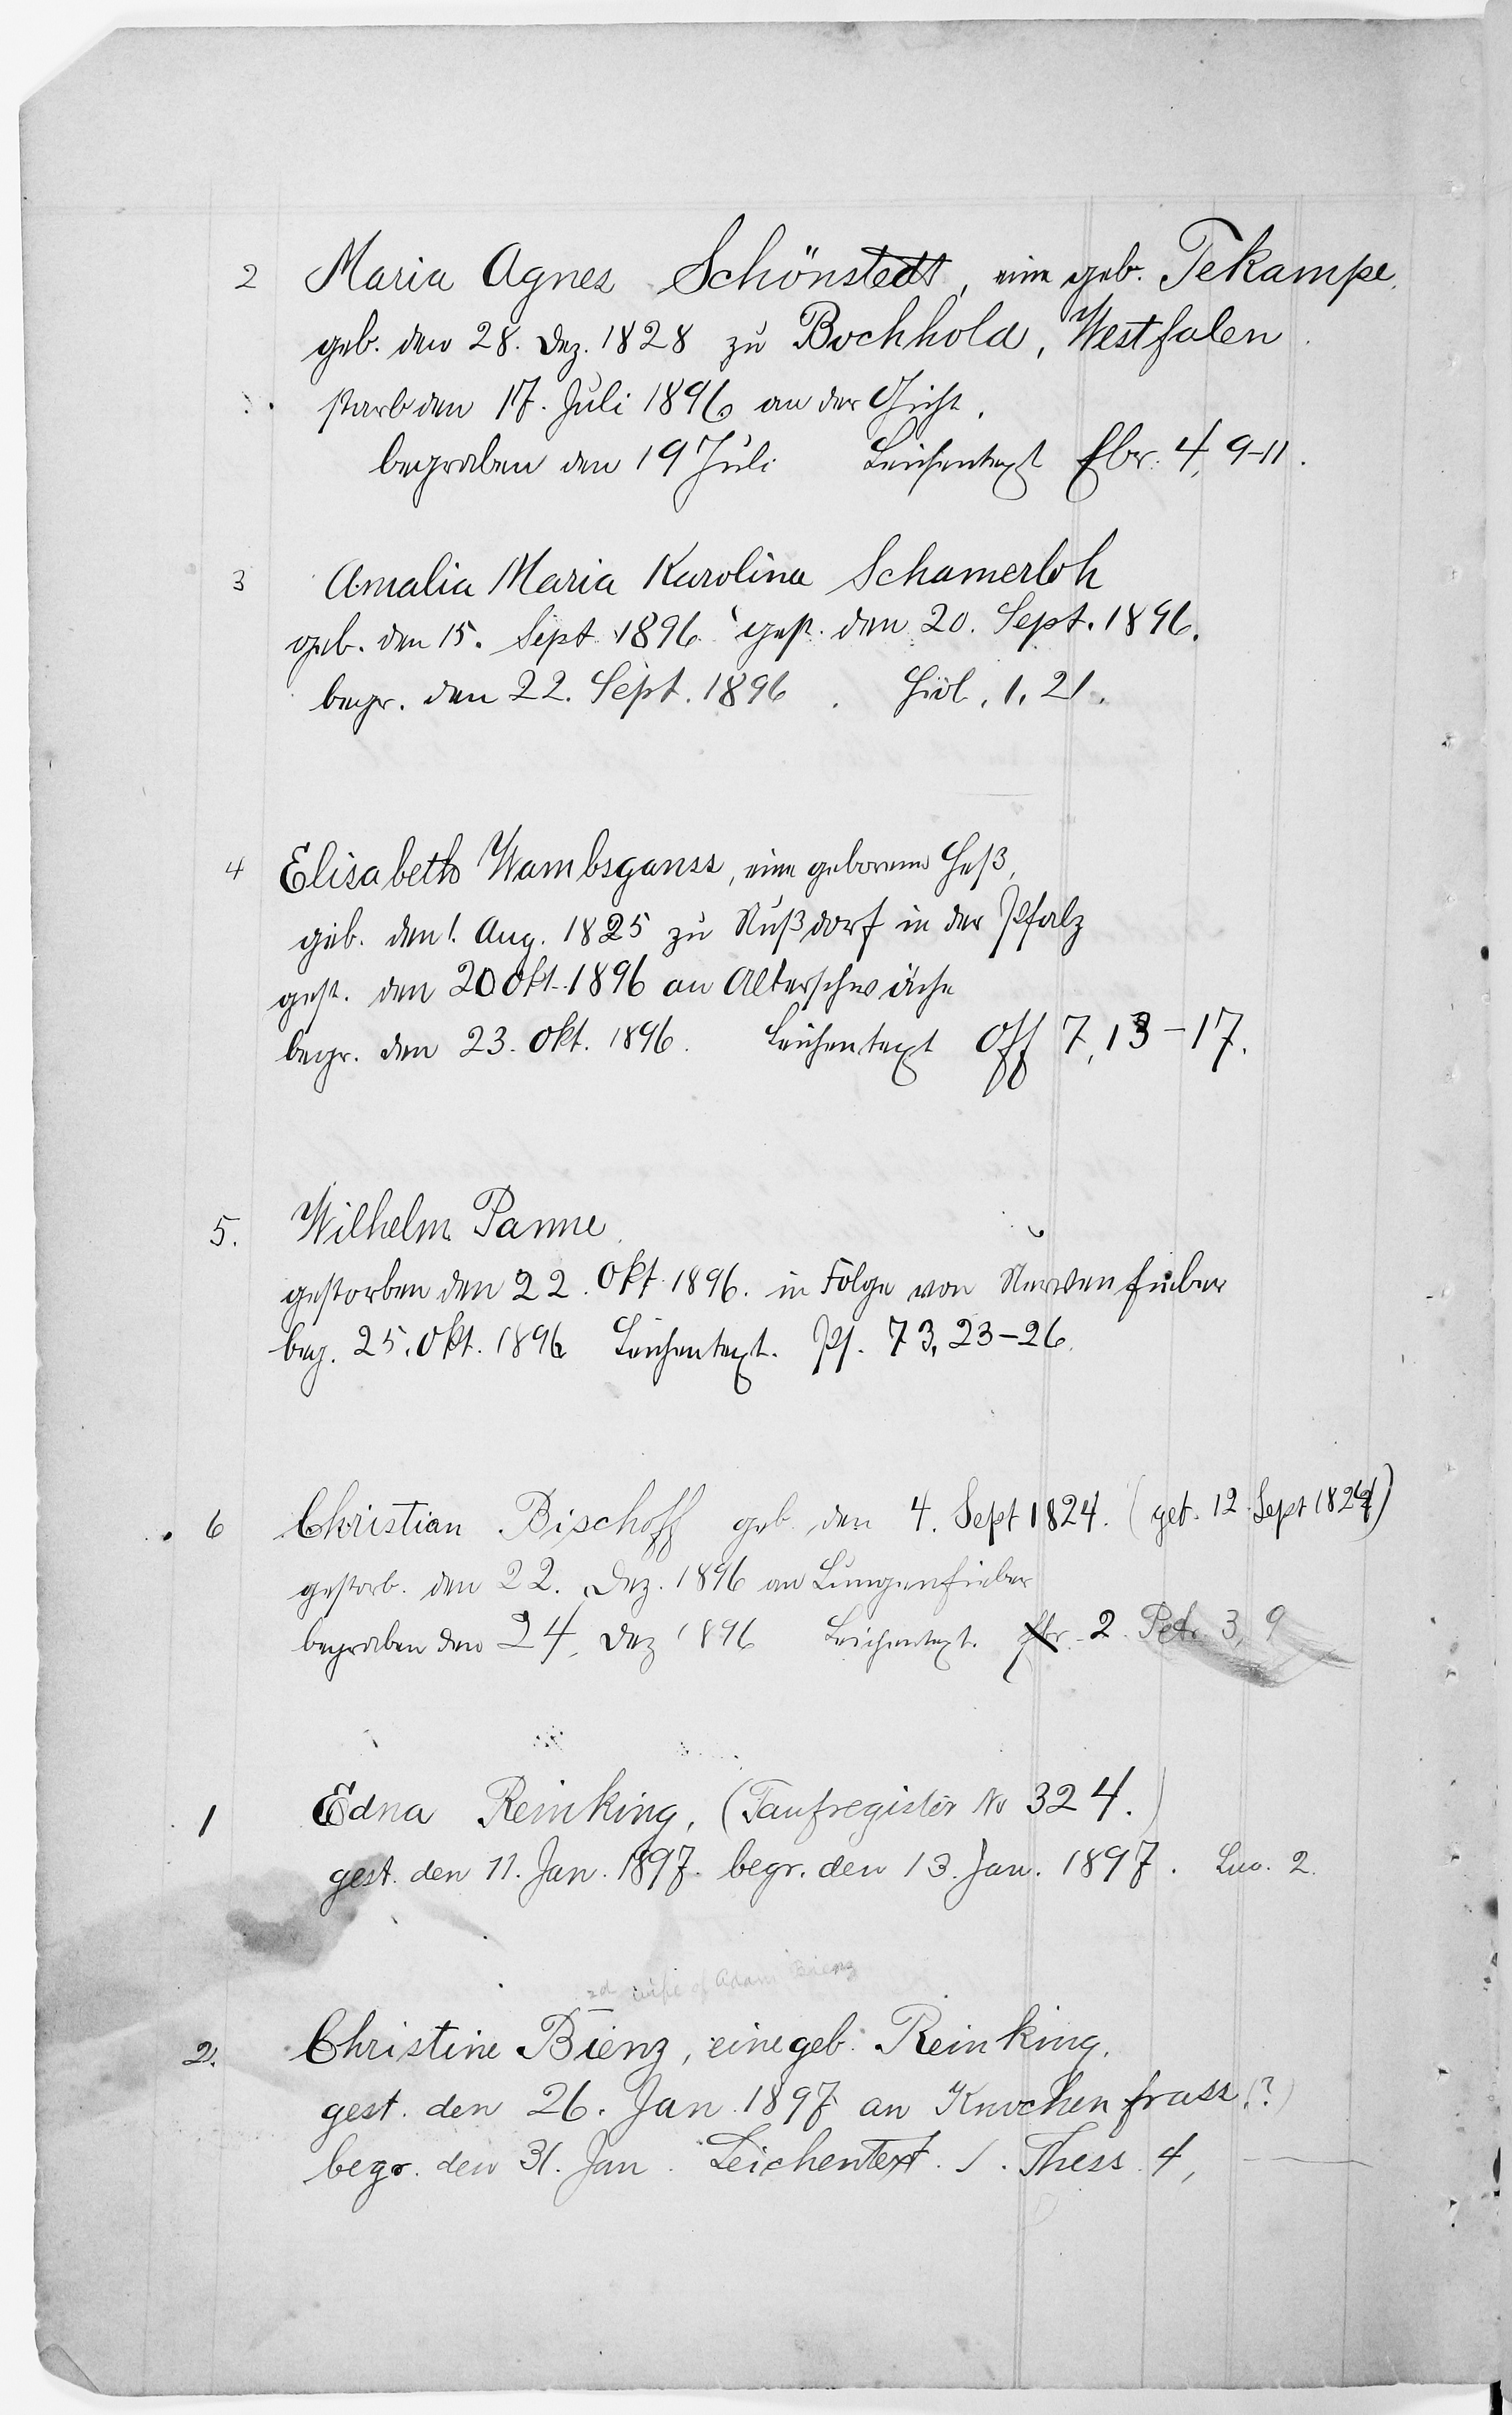 2 Maria Agnes Schönstedt, eine geb. Tekampe.
geb. den 28. Dez. 1828 zu Bochhold, Westfalen.
starb den 17. Juli 1896 an der Gicht.
begraben den 19 Juli Leichentext Ebr. 4, 9-11.
3 Amalia Maria Karolina Schamerloh
geb. den 15. Sept. 1896. gest. den 20. Sept. 1896.
begr. den 22. Sept. 1896. Hiob. 1, 21.
4 Elisabeth Wambsganss, eine geborene Heß,
geb. den 1. Aug. 1825 zu Nußdorf in der Pfalz
gest. den 20 Okt. 1896 an Alterschwäche
begr. den 23. Okt. 1896. Leichentext Off 7, 13-17.
5. Wilhelm Panne.
gestorben den 22. Okt. 1896. in Folge von Nervenfieber
beg. 25. Okt. 1896 Leichentext. Ps. 73, 23-26.
6 Christian Bischoff geb. den 4. Sept 1824. (get. 12. Sept 1824)
gestorb. den 22. Dez. 1896 an Lungenfieber
begraben den 24. Dez 1896 Leichentext. Ebr. 2. Petr. 3, 9
1 Edna Reinking, (Taufregister No 324.)
gest. den 11. Jan. 1897. begr. den 13. Jan. 1897. Luc. 2.
2d wife of Adam Bienz
2. Christine Bienz, eine geb. Reinking.
gest. den 26. Jan. 1897 an Knochenfrass (?)
begr. den 31. Jan. Leichentext. 1. Thess. 4, —